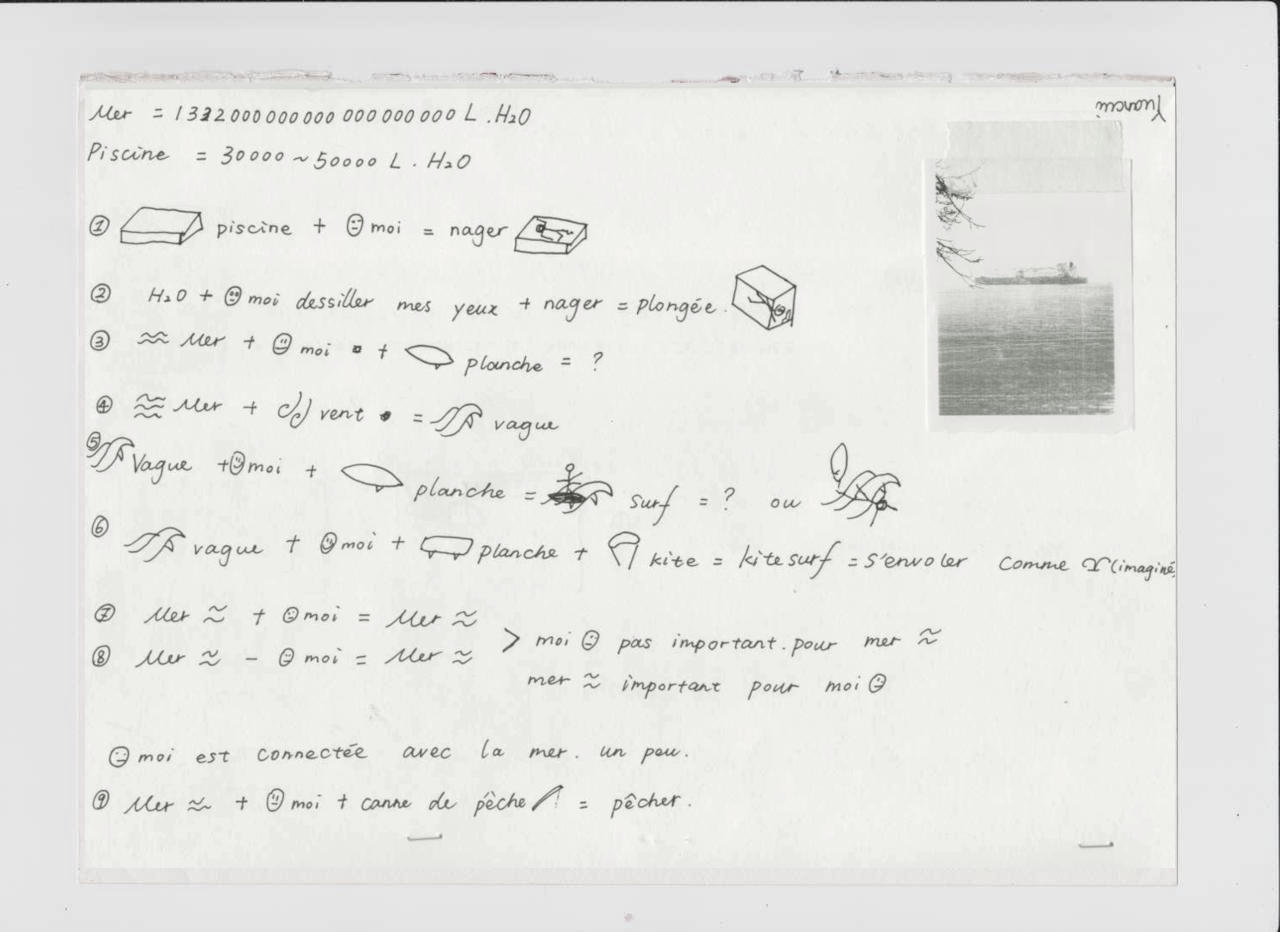 Mer = 1322000000000 000000000 L . H2O
Piscine = 30000 ~ 50000 L . H2O
① piscine + moi = nager
② H2O + moi dessiller mes yeux + nager = plongée.
③ Mer + moi + planche = ?
④ Mer + vent = vague
⑤ Vague + moi + planche = surf = ? ou
⑥ vague + moi + planche + kite = kitesurf = s'envoler comme (imaginé
⑦ Mer ≈ + moi = Mer ≈
⑧ Mer ≈ - moi = Mer ≈
> moi pas important. pour mer ≈
mer ≈ important pour moi
moi est connectée avec la mer. un peu.
⑨ Mer ≈ + moi + canne de pêche = pêcher.